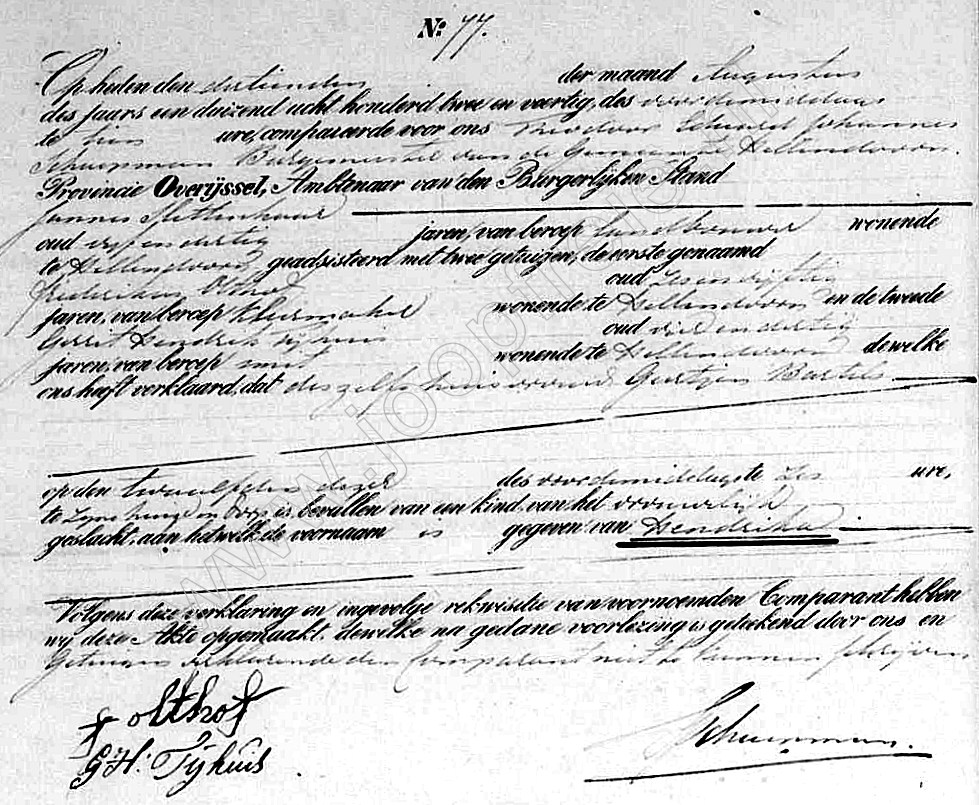 N:o 77.
Op heden den dertienden der maand Augustus
des jaars een duizend acht honderd twee en veertig, des voordemiddags
te tien ure, compareerde voor ons Theodoor Eduard Johannes
Schuurman Burgemeester van de Gemeente Hellendoorn
Provincie Overijssel, Ambtenaar van den Burgerlijken Stand
Jannes
oud vyfendertig jaren, van beroep landbouwer wonende
te Hellendoorn geadsisteerd met twee getuigen, de eerste genaamd
Frederikus Olthof oud zesenvijftig
jaren, van beroep kleermaker wonende te Hellendoorn en de tweede
Gerrit Hendrik Tijhuis oud vier en dertig
jaren, van beroep smit wonende te Hellendoorn dewelke
ons heeft verklaard, dat deszelfs huisvrouw Gertjen Bartels
op den twaalfden dezer des voordemiddags te zes ure,
te zijne huize in is bevallen van een kind van het vrouwelijk
geslacht, aan hetwelk de voornaam is gegeven van Hendrika
Volgens deze verklaring en ingevolge rekwisitie van voornoemden Comparant hebben
wij deze Akte opgemaakt, dewelke na gedane voorlezing is geteekend door ons en
getuigen verklarende den Comparant niet te kunnen schrijven
F olthof
GH: Tijhuis
Schuurman.
www.joopfrei